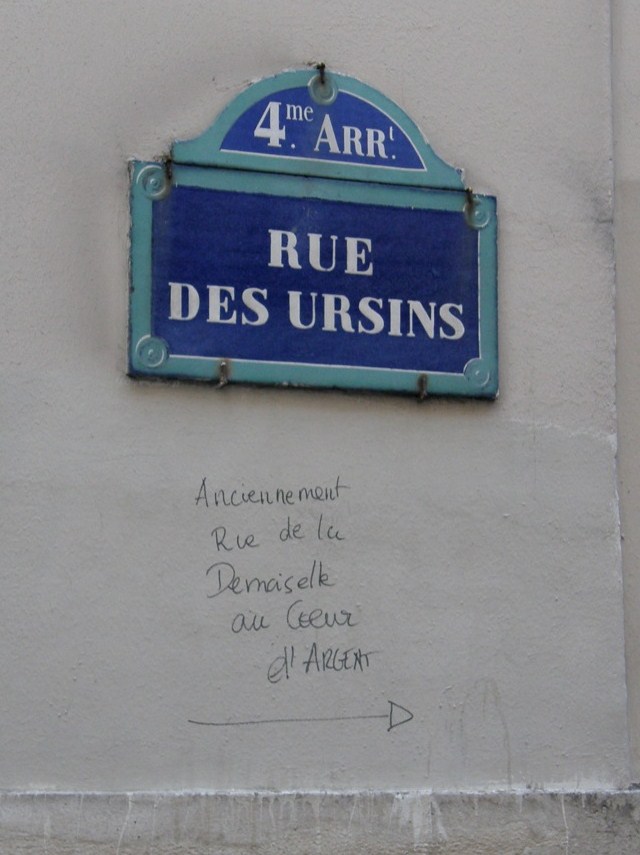 4.me ARR.t
RUE
DES URSINS
Anciennement
Rue de la
Demoiselle
au Coeur
d'ARGENT